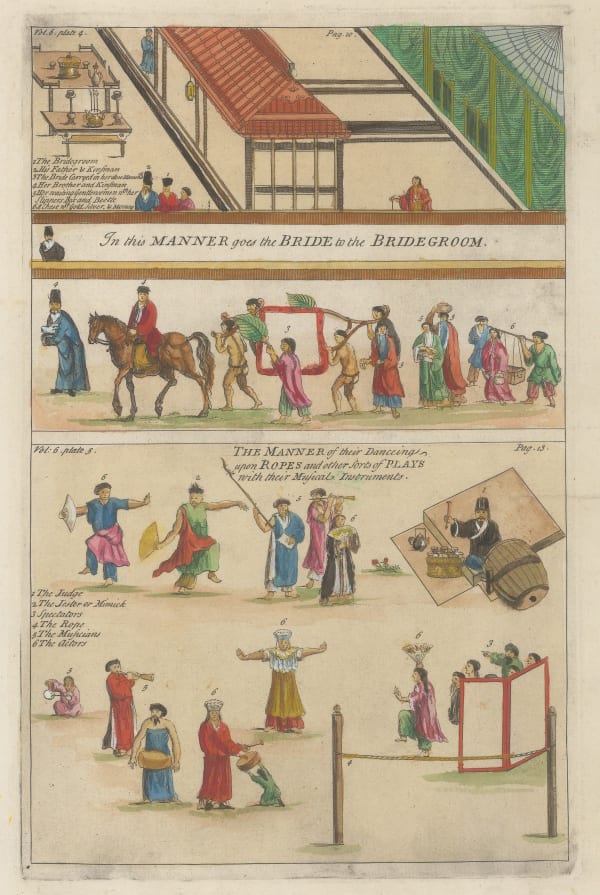 Vol. 6. plate 4.
Pag. 10.
1 The Bridegroom
2 His Father & Kinsman
3 The Bride Carryed in her
4 Her Brother and Kinsman
5 Her waiting Gentlewomen wth her
Slippers, Box and Beetle
6 A Chest wth Gold, Silver, & Money
2
In this MANNER goes the BRIDE to the BRIDEGROOM.
4
4
3
5
5
5
6
Vol: 6. plate 5.
THE MANNER of their Danceing
upon ROPES and other Sorts of PLAYS
with their Musical Instruments.
Pag. 13.
6
2
5
5
6
1
1 The Judge
2 The Jester or Mimick
3 Spectators
4 The Rope
5 The Musicians
6 The Actors
5
5
6
6
6
3
4